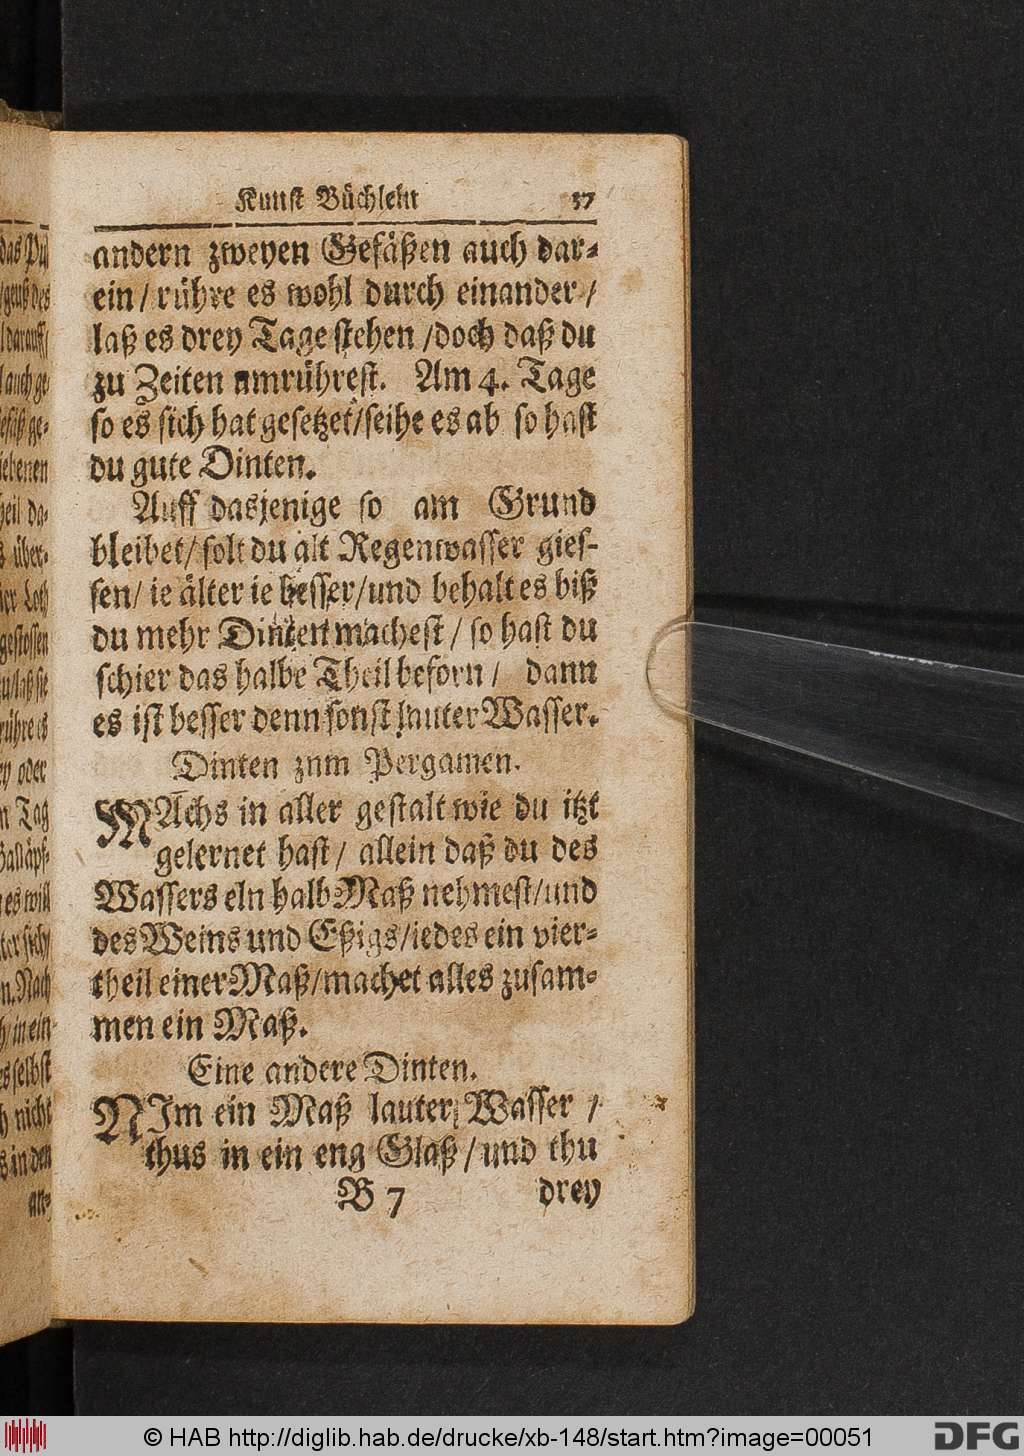 Kunst Büchlein 37
andern zweyen Gefäßen auch dar-
ein / rühre es wohl durch einander /
laß es drey Tage stehen / doch daß du
zu Zeiten amrührest. Am 4. Tage
so es sich hat gesetzet / seihe es ab so hast
du gute Dinten.
Auff dasjenige so am Grund
bleibet / solt du alt Regenwasser gies-
sen / ie älter ie besser / und behalt es biß
du mehr Dinten machest / so hast du
schier das halbe Theil beforn / dann
es ist besser denn sonst lauter Wasser.
Dinten znm Pergamen.
MAchs in aller gestalt wie du itzt
gelernet hast / allein daß du des
Wassers eln halb Maß nehmest / und
des Weins und Eßigs / iedes ein vier-
theil einer Maß / machet alles zusam-
men ein Maß.
Eine andere Dinten.
NIm ein Maß lauter Wasser /
thus in ein eng Glaß / und thu
B 7 drey
das Pul
/ geuß des
l darauff /
l auch ge-
efäß ge-
iebenen
heil da-
s über-
ier Loth
gestossen
rühre es
ey oder
n Tag
es will
ter sich
n. Nach
h / in ein
es selbst
h nicht
s in den
an-
© HAB http://diglib.hab.de/drucke/xb-148/start.htm?image=00051
DFG